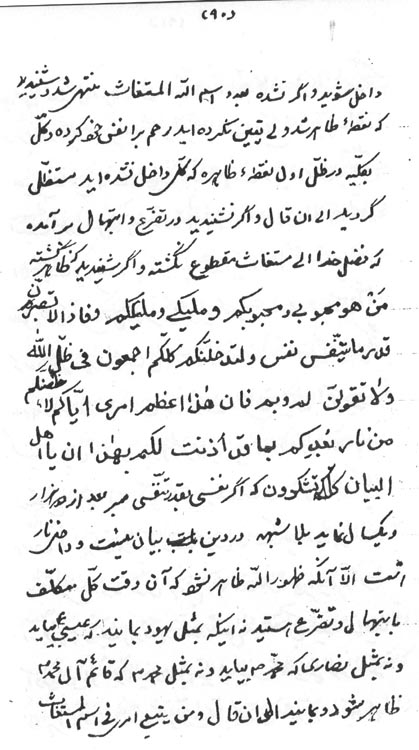 (٩٠)
داخل شوید و اگر نشده بعدد اسم الله المستغاث منتهی شد و شنیدید
که نقطهٔ ظاهر شد ولی یقین نکرده اید رحم بر انفس خود کرده و کلّ
بکلّیه در ظلّ اول نقطهٔ ظاهره که کلّ داخل نشده اید مستظلّ
گردید الی ان قال و اگر نشنیدید در تضرّع و ابتهال برآمده
که فضل خدا الی مستغاث مقطوع نگشته و اگر شنیدید که ظاهر گشته
مَنْ هو محبوبی و محبوبکم و ملیکی و ملیککم و فاذا لا تصبرون
قدر ما یتنفّس نفس و لتدخلنّکم کلّکم اجمعون فی ظلّ الله
و لا تقولنّ لم و بم فان هذا اعظم امری ایّاکم لاخلصنّکم
من نار بُعدکم بما قد أذنت لکم بهذا ان یا اهل
البیان کلّ تشکرون که اگر نفسی بقدر تنفّسی صبر بعد از دو هزار
و یکسال نماید بلا شبهه در دین بیان نیست و داخل نار
است الّا آنکه ظهور الله ظاهر نشود که آن وقت کلّ مکلّف
بابتهال و تضرّع استید نه اینکه بمثل یهود بمانید که عیسی ع بیاید
و نه بمثل نصاری که محمّد ص بیاید و نه بمثل محمد ص که قائم آل محمد ص
ظاهر شود و بمانید الی ان قال و من یتبع امری فی اسم المستغاث